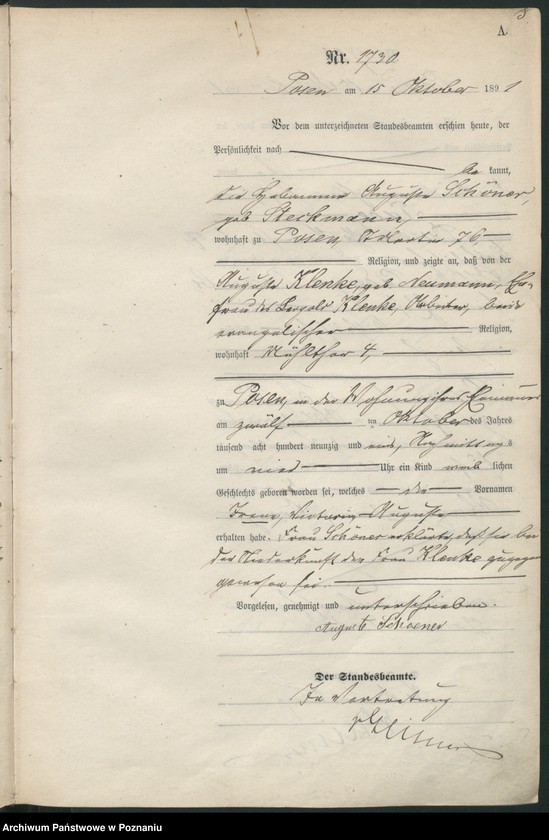 A.
Nr. 1730
Posen am 15 Oktober 1891
Vor dem unterzeichneten Standesbeamten erschien heute, der
Persönlichkeit nach
be kannt,
die Hebamme Auguste Schöner,
geb Steckmann,
wohnhaft zu Posen, 76
Religion, und zeigte an, daß von der
Auguste Klenke, geb. Neumann, Ehe-
frau des Leopold Klenke, Arbeiter, beide
evangelischer Religion,
wohnhaft Mühlthor 4,
zu Posen, in der Wohnung ihres Ehemannes
am zwölf ten Oktober des Jahres
tausend acht hundert neunzig und eins, Nachmittags
um Uhr ein Kind weib lichen
Geschlechts geboren worden sei, welches die Vornamen
Auguste
erhalten habe. Frau Schöner erklärte, daß sie bei
der Niederkunft der Frau Klenke zugegen
gewesen sei.
Vorgelesen, genehmigt und unterschrieben.
Auguste Schoener
Der Standesbeamte.
In Vertretung
Archiwum Państwowe w Poznaniu